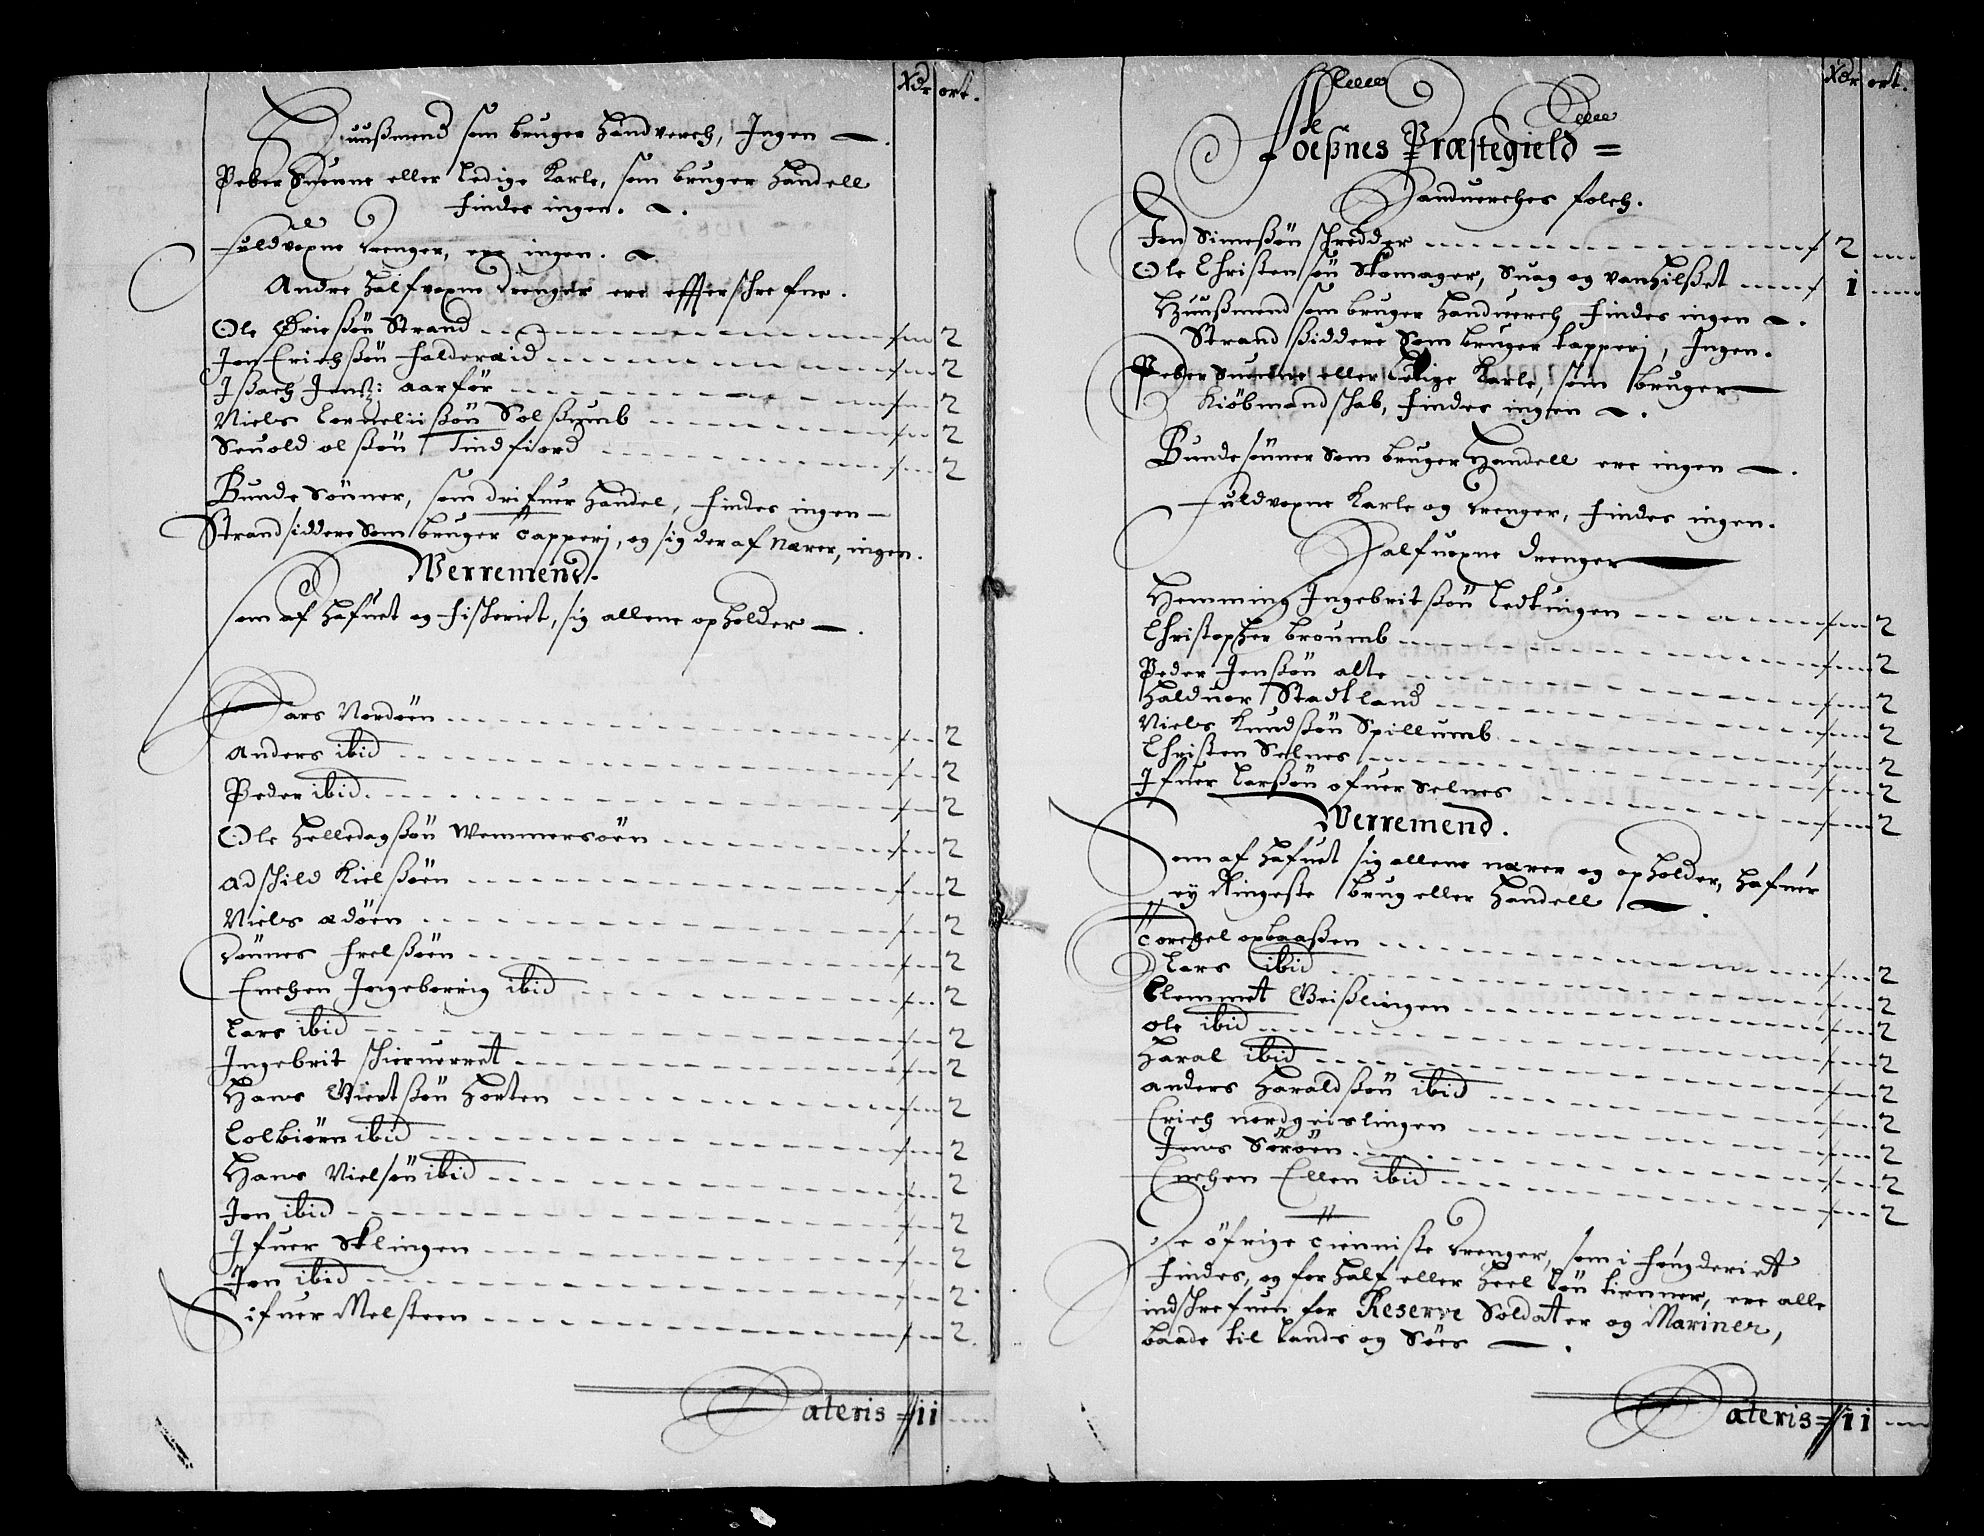 Xdr ort.
Huußmend som bruger handverch, Ingen —.
Peber Suenne eller Ledige Karle, som bruger handell
findes ingen.
Fuldvoxne Drenger, ere ingen.
Andre halfvoxne Drenger ere effterschrefne.
Ole Ørießøn Strand 2
Jon Erichßøn Falderaid 2
Ißach Jenß: aarför 2
Niels Corneliißøn Solßumb 2
Seuold olßøn Tindfiord 2
Bunde Sønner, som drifuer handel, findes ingen —
Strandsiddere Som bruger Tapperj, og sig deraf Nærer, ingen.
Werremend.
som af hafuet og fischeriet, sig allene opholder —.
Lars Nordøen 2
Anders ibid 2
Peder ibid 2
Ole helledagßøn Wemmersøen 2
Adschild Kielßøen 2
Niels adøen 2
Tønnes Frelßøen 2
Enchen Ingeborrig ibid 2
Lars ibid 2
Ingebrit schieruerret 2
Hans Siertßøn horten 2
Colbiørn ibid 2
Hans Nielsøn ibid 2
Jon ibid 2
Ifuer Sklingen 2
Jon ibid 2
Sifuer Melsteen 2
Lateris = 11
Xdr ort.
Foeßnes Præstegield =
Handuerches folch.
Jon Simeßøn schredder 2
Ole Christensøn Skomager, Suag og vanhilßet 1
Huußmend som bruger Handuerch findes ingen.
Strandßiddere Som bruger tapperj, Ingen.
Peber Suenne eller Ledige Karle, som bruger
Kiøbmandschab, findes ingen.
Bundesønner Som bruger Handell ere ingen —.
Fuldvoxne Karle og Drenger, findes ingen.
Halfuoxne Drenger
Hemming Ingebritßøn Ledtuigen 2
Christopher broumb 2
Peder Jenßøn alte 2
Halduor Stadtland 2
Niels Knudßøn Spillumb 2
Christen Selnes 2
Ifuer Larßøn ofuer Selnes 2
Werremend.
Som af hafuet sig allene nærer og opholder, hafuer
ey Ringeste brug eller handell —.
Torchel opbaaßen 2
Lars ibid 2
Clemmet Geißlingen 2
Ole ibid 2
Haral ibid 2
Anders Haraldßøn ibid 2
Erich nordgeislingen 2
Jens Sørøen 2
Enchen Ellen ibid 2
De øfrige Tienniste Drenger, som i fougderiet
findes, og for half eller heel løn tienner, ere alle
indschrefuen for Reserve Soldatter og Mariner,
baade til Lands og Søes —.
Lateris = 11